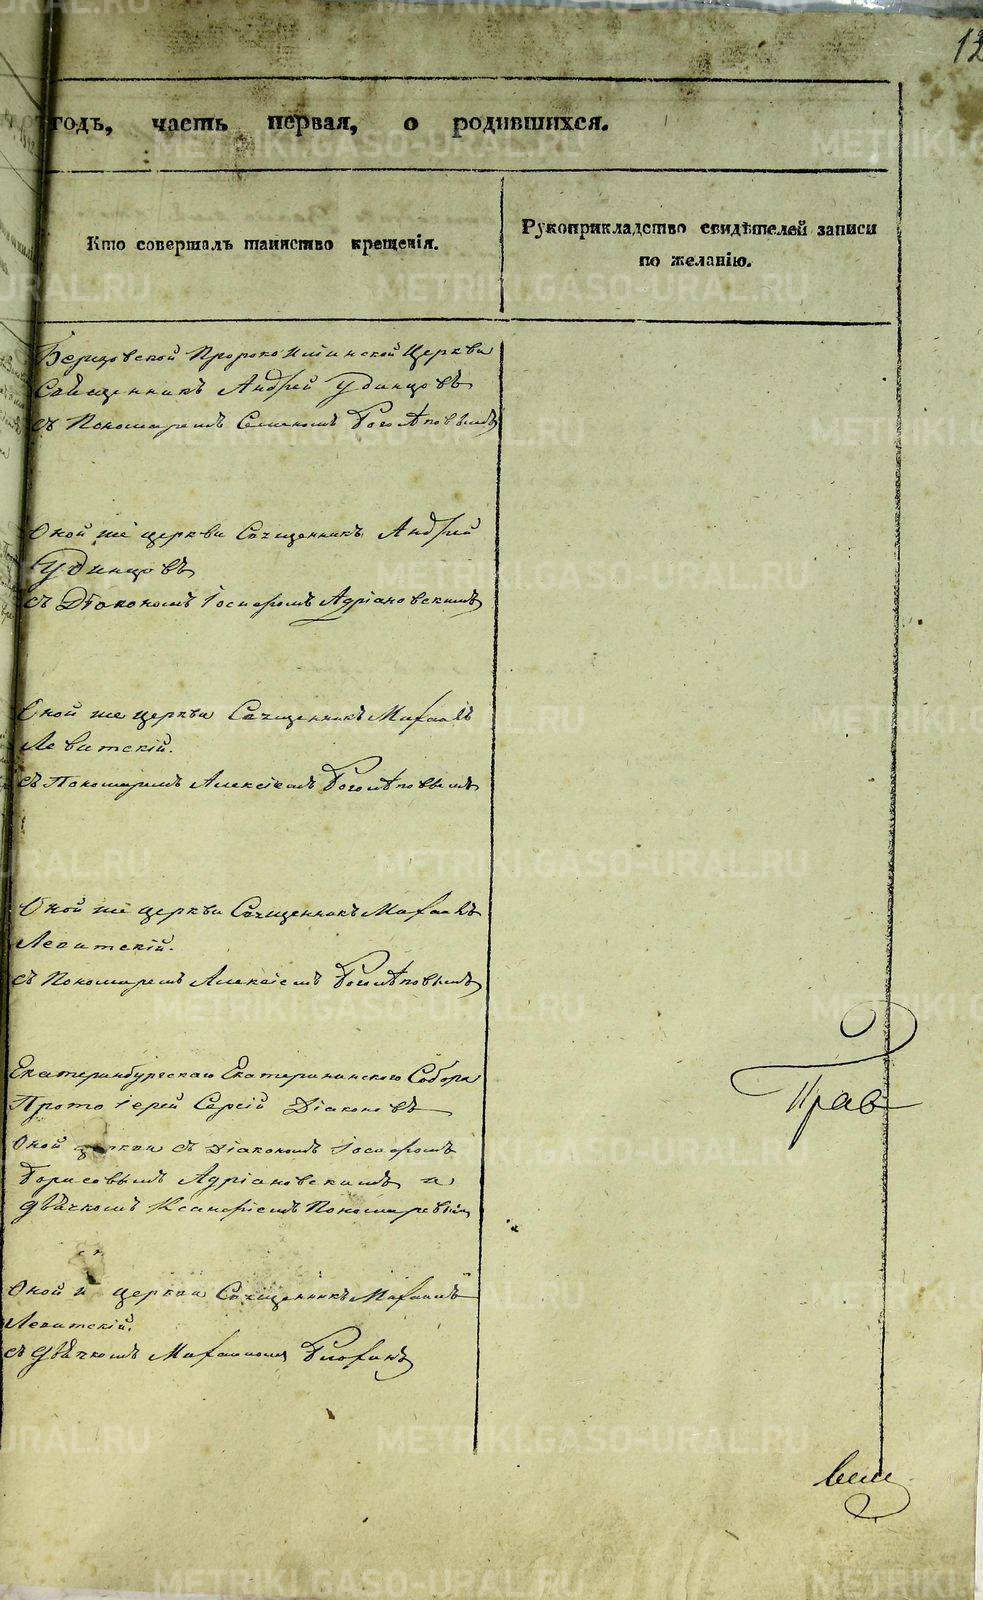 12
годъ, часть первая, о родившихся.
Кто совершалъ таинство крещенія.
Рукоприкладство свидѣтелей записи
по желанію.
Березовской Пророко Ильинской Церкви
Священникъ Андрей Удинцовъ
съ Пономаремъ Семеномъ Боголѣповымъ
Оной же церкви Священникъ Андрей
Удинцовъ
съ Діакономъ Іосифомъ Адріановскимъ
Оной же церкви Священникъ Михаилъ
Левитскій.
съ Пономаремъ Алексіемъ Боголѣповымъ
Оной же церкви Священникъ Михаилъ
Левитскій.
съ Пономаремъ Алексіемъ Боголѣповымъ
Екатеринбургскаго Екатерининского Собора
Прото Іерей Сергій Діаконовъ
Оной церкви съ Діакономъ Іосифомъ
Борисовымъ Адріановскимъ и
дьячкомъ Пономаревым
Оной церкви Священникъ Михаилъ
Левитскій.
съ дьячкомъ Михаиломъ
Прав
METRIKI.GASO-URAL.RU